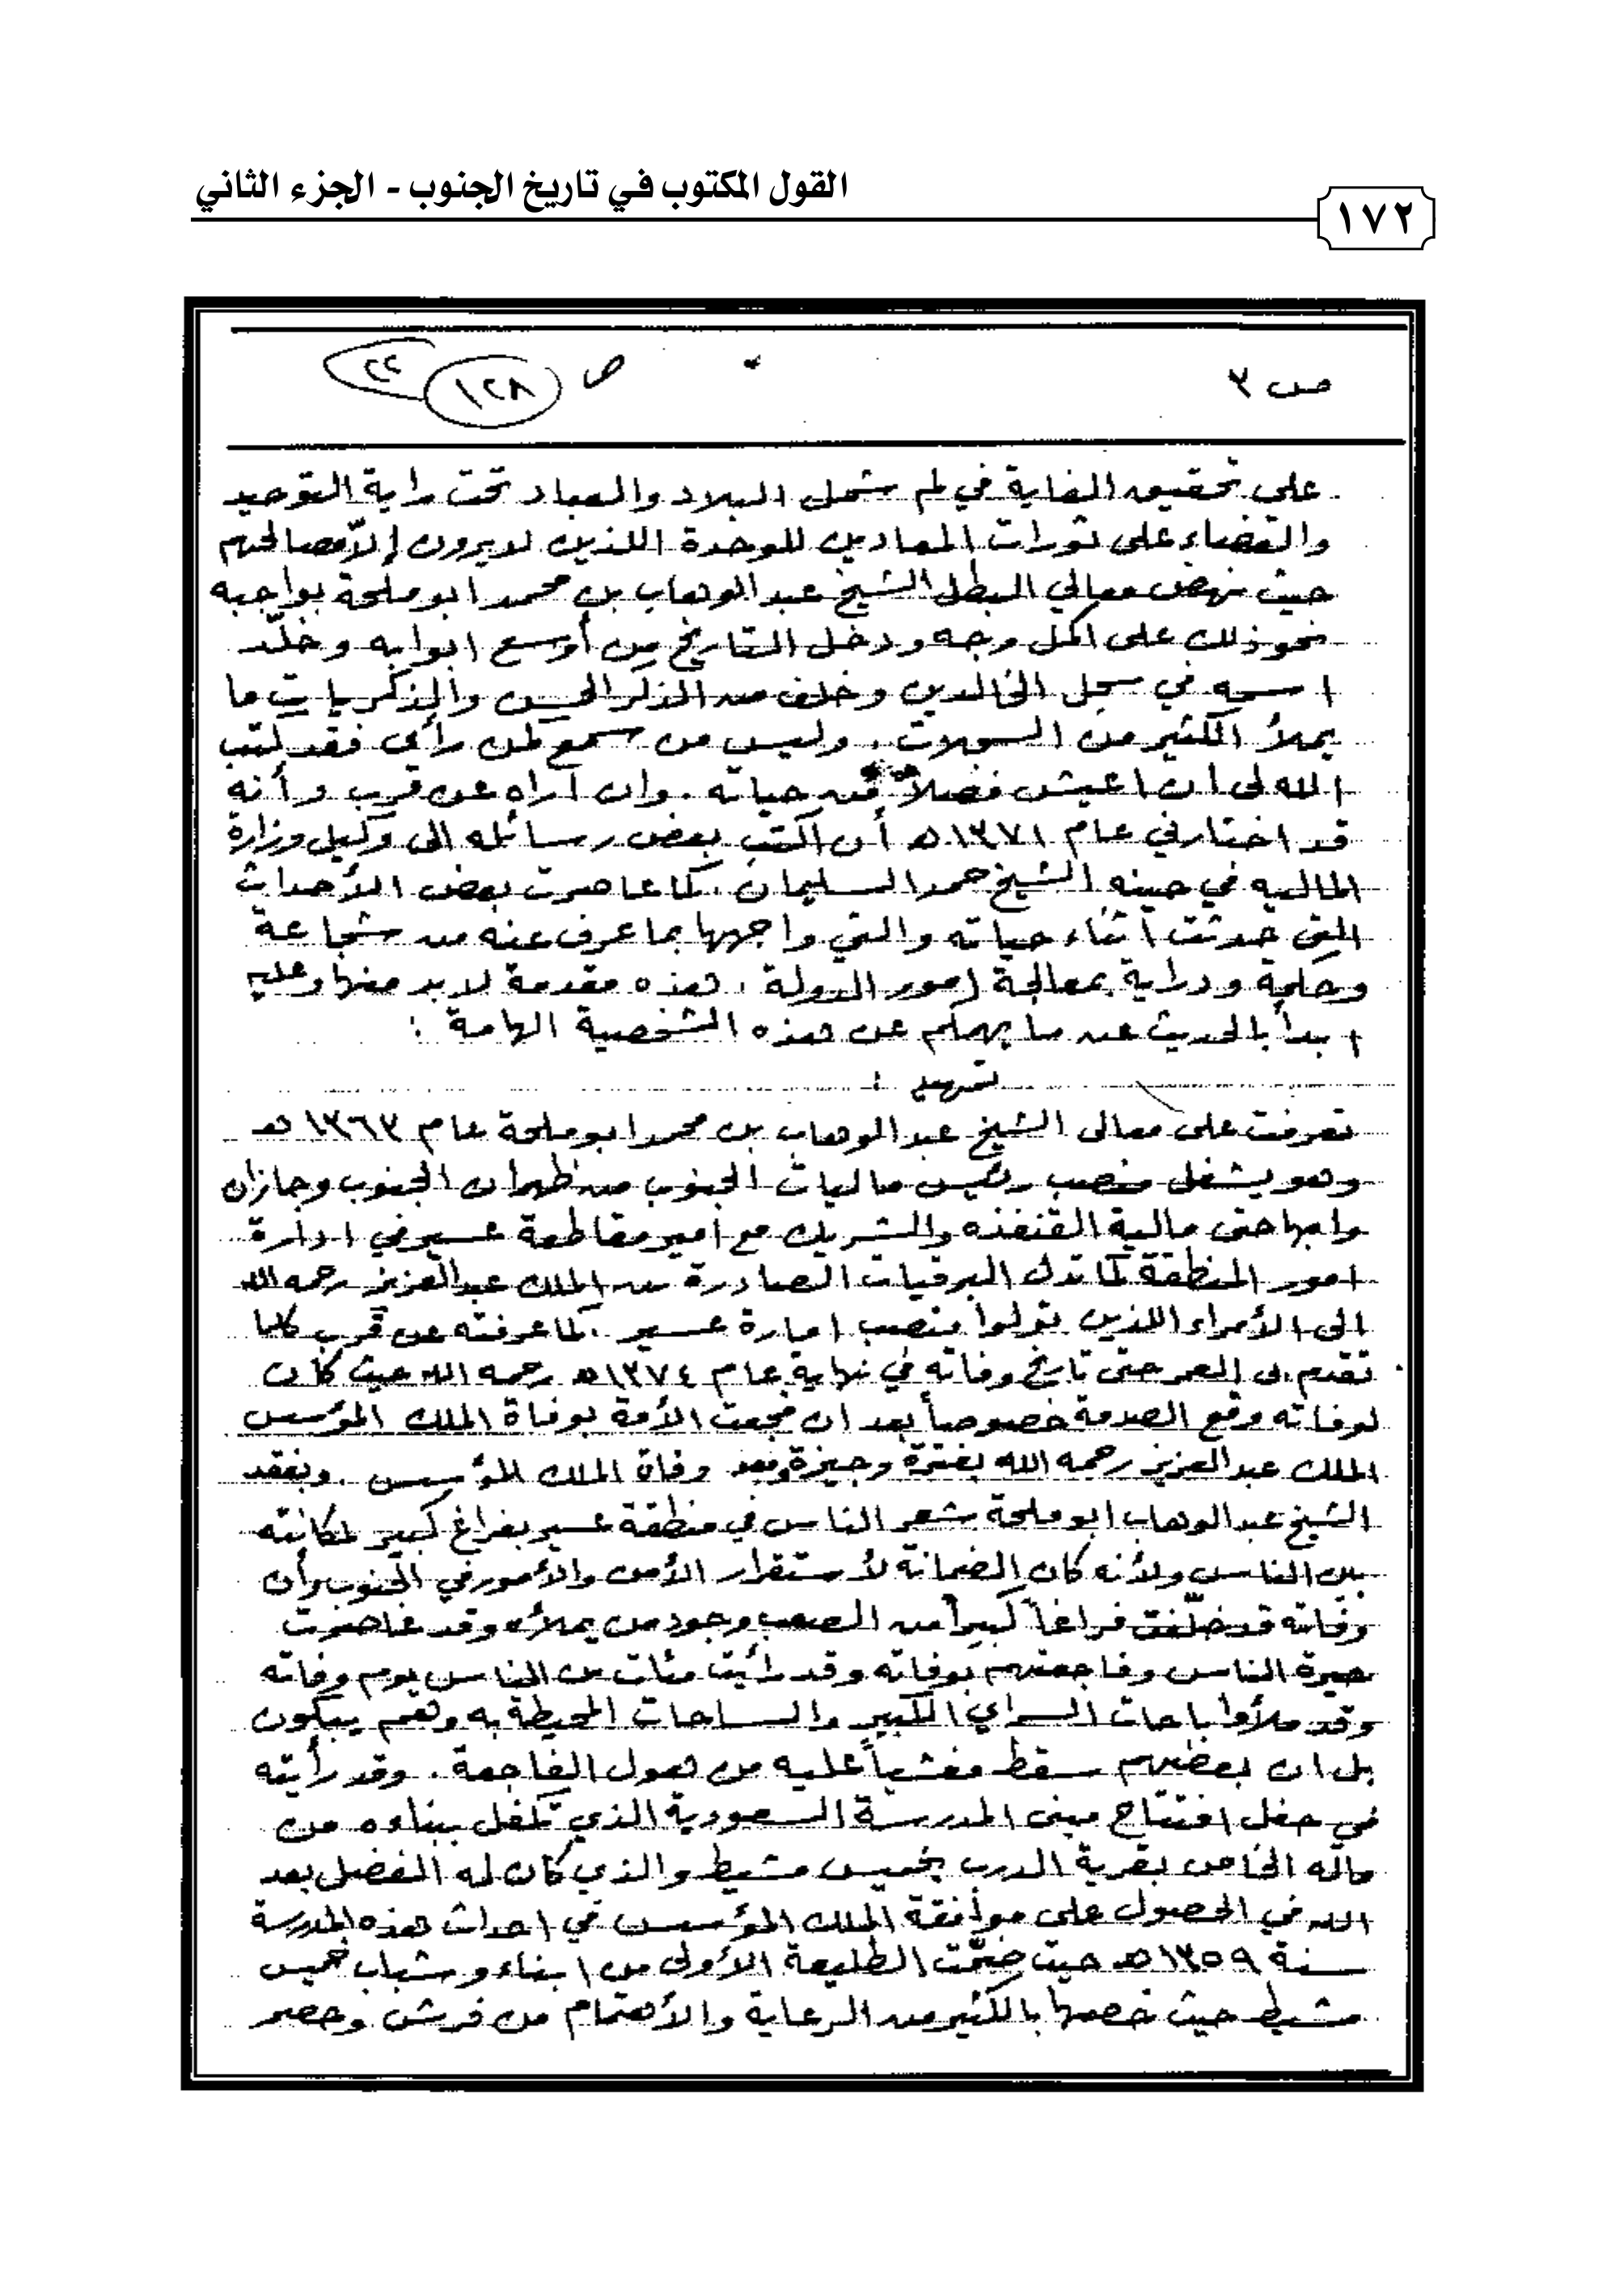 القول المكتوب في تاريخ الجنوب - الجزء الثاني
١٧٢
ص ٣
ص ١٢٨ ٢٢
على تحقيق الغاية في لم شمل البلاد والعباد تحت راية التوحيد
والقضاء على ثورات المعادين للوحدة اللذين لايرون إلاّ مصالحهم
حيث نهض معالي البطل الشيخ عبدالوهاب بن محمد ابو ملحة بواجبه
نحو ذلك على اكمل وجه ودخل التاريخ من أوسع ابوابه وخلّد
اسمه في سجل الخالدين وخلف من الذكر الحسن والذكريات ما
يملأ الكثير من السجلات . وليس من سمع كمن رأى فقد كتب
الله لي ان اعيش فصلاً من حياته . وان أراه عن قرب وأنه
قد اختارني عام ١٣٧١هـ أن اكتب بعض رسائله الى وكيل وزارة
المالية في حينه الشيخ حمد السليمان . كما عاصرت بعض الأحداث
التي حدثت اثناء حياته والتي واجهها بما عرف عنه من شجاعة
وحكمة ودراية بمعالجة امور الدولة . هذه مقدمة لابد منها وعليه
ابدأ بالحديث عن ما يهمكم عن هذه الشخصية الهامة :
تمهيد :
تعرفت على معالي الشيخ عبدالوهاب بن محمد ابو ملحة عام ١٣٦٣ هـ
وهو يشغل منصب رئيس ماليات الجنوب من ظهران الجنوب وجازان
وابها حتى مالية القنفذه والشريك مع امير مقاطعة عسير في ادارة
امور المنطقة كما تدل البرقيات الصادرة من الملك عبدالعزيز رحمه الله
الى الأمراء اللذين تولوا منصب امارة عسير . كما عرفته عن قرب كلما
تقدم بى العمر حتى تاريخ وفاته في نهاية عام ١٣٧٤هـ رحمه الله حيث كان
لوفاته وقع الصدمة خصوصاً بعد ان فجعت الأمة بوفاة الملك المؤسس
الملك عبدالعزيز رحمه الله بفترة وجيزة وبعد وفاة الملك المؤسس . وبفقد
الشيخ عبدالوهاب ابو ملحة شعر الناس في منطقة عسير بفراغ كبير لمكانته
بين الناس ولأنه كان الضمانة لأستقرار الأمن والأمور في الجنوب وأن
وفاته قد خلّفت فراغاً كبيراً من الصعب وجود من يملأه وقد عاصرت
حيرة الناس وفاجعتهم بوفاته وقد رأيت مئات من الناس يوم وفاته
وقد ملأوا باحات السراي الكبير والساحات المحيطة به وهم يبكون
بل ان بعضهم سقط مغشياً عليه من هول الفاجعة . وقد رأيته
في حفل افتتاح مبنى المدرسة السعودية الذي تكفل ببناءه من
ماله الخاص بقرية الدرب بخميس مشيط والذي كان له الفضل بعد
الله في الحصول على موافقة الملك المؤسس في احداث هذه المدرسة
سنة ١٣٥٩هـ حيث ضمّت الطليعة الأولى من ابناء وشباب خميس
مشيط حيث خصها بالكثير من الرعاية والأهتمام من فرش وحصر